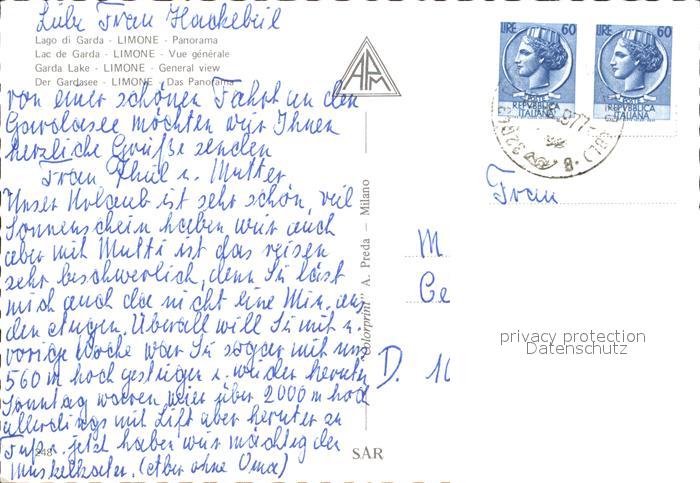 Liebe Frau Hackebeil
Lago di Garda - LIMONE - Panorama
Lac de Garda - LIMONE - Vue générale
Garda Lake - LIMONE - General view
Der Gardasee - LIMONE - Das Panorama
von einer schönen Fahrt an den
Gardasee möchten wir Ihnen
herzliche Grüße senden
Frau Thul u. Mutter
Unser Urlaub ist sehr schön, viel
Sonnenschein haben wir auch
aber mit Mutti ist das reisen
sehr beschwerlich, denn Sie läst
mich auch da nicht eine Min. aus
den Augen. Überall will Sie mit u.
vorige Woche war Sie sogar mit uns
560 m hoch gestiegen u. wieder herunter
Sonntag waren wir über 2000 m hoch
allerdings mit Lift aber herunter zu
Fuß. jetzt haben wir mächtig den
Muskelkater. (Aber ohne Oma)
848
APM
Colorprint A. Preda - Milano
SAR
LIRE 60
POSTE
REPVBBLICA
ITALIANA
LIRE 60
REPVBBLICA
ITALIANA
Frau
M
Ge
D. 10
privacy protection
Datenschutz